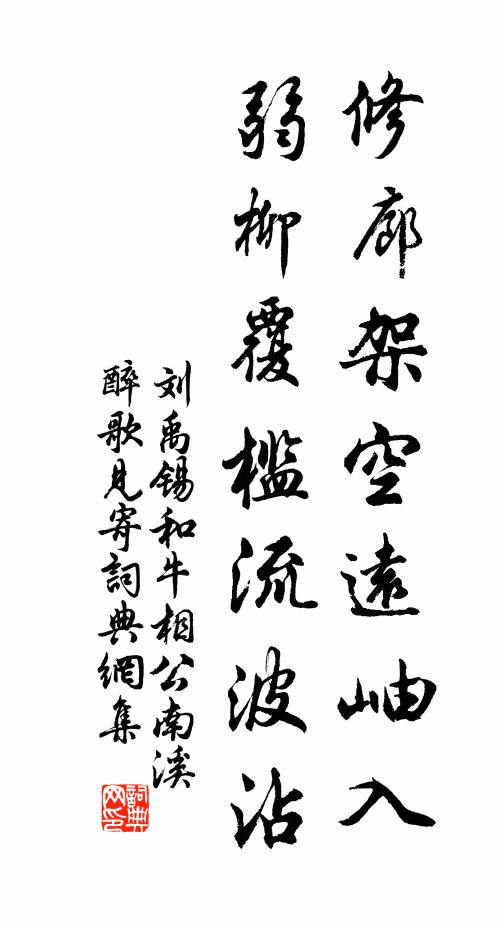 修廊架空遠岫入
弱柳覆檻流波沾
刘禹锡和牛相公南溪
醉歌見寄詞典網集
詞典网印